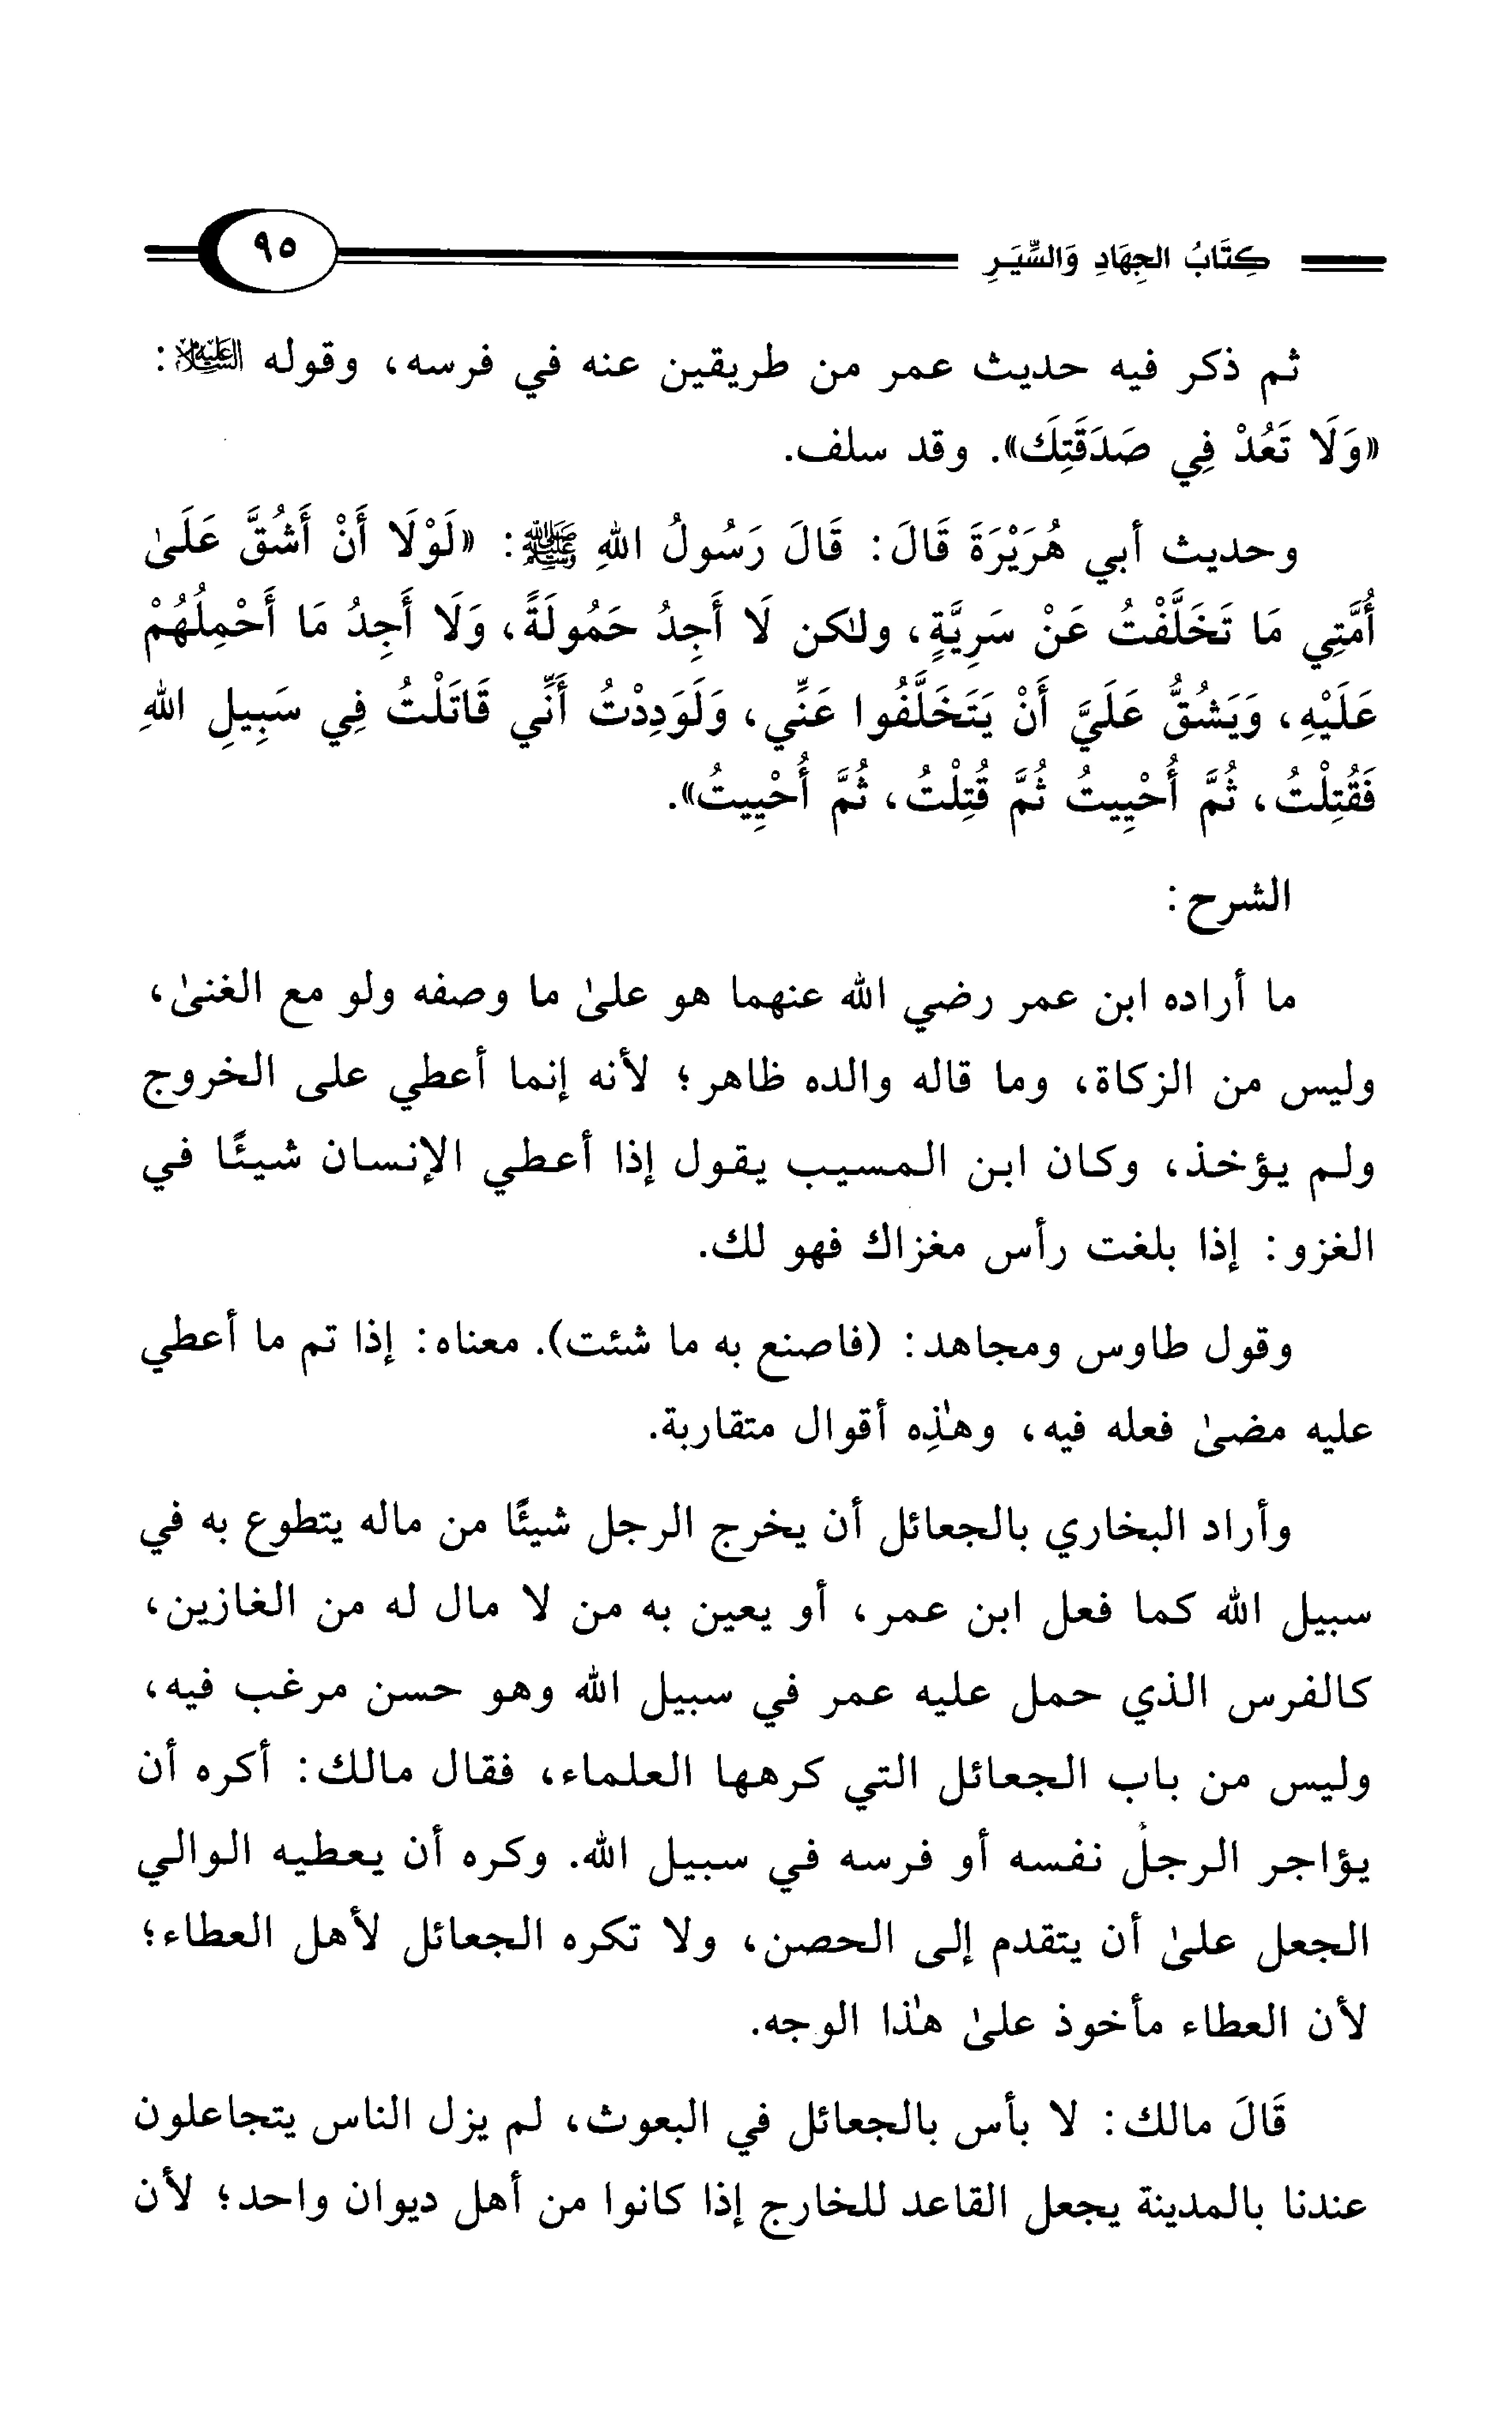 كِتَابُ الجِهَادِ وَالسِّيَرِ ٩٥
ثم ذكر فيه حديث عمر من طريقين عنه في فرسه، وقوله عليه السلام:
«وَلَا تَعُدْ فِي صَدَقَتِكَ». وقد سلف.
وحديث أبي هُرَيْرَةَ قَالَ: قَالَ رَسُولُ اللهِ ﷺ: «لَوْلَا أَنْ أَشُقَّ عَلَىٰ
أُمَّتِي مَا تَخَلَّفْتُ عَنْ سَرِيَّةٍ، ولٰكن لَا أَجِدُ حَمُولَةً، وَلَا أَجِدُ مَا أَحْمِلُهُمْ
عَلَيْهِ، وَيَشُقُّ عَلَيَّ أَنْ يَتَخَلَّفُوا عَنِّي، وَلَوَدِدْتُ أَنِّي قَاتَلْتُ فِي سَبِيلِ اللهِ
فَقُتِلْتُ، ثُمَّ أُحْيِيتُ ثُمَّ قُتِلْتُ، ثُمَّ أُحْيِيتُ».
الشرح:
ما أراده ابن عمر رضي الله عنهما هو علىٰ ما وصفه ولو مع الغنىٰ،
وليس من الزكاة، وما قاله والده ظاهر؛ لأنه إنما أعطي على الخروج
ولم يؤخذ، وكان ابن المسيب يقول إذا أعطي الإنسان شيئًا في
الغزو: إذا بلغت رأس مغزاك فهو لك.
وقول طاوس ومجاهد: (فاصنع به ما شئت). معناه: إذا تم ما أعطي
عليه مضىٰ فعله فيه، وهٰذِه أقوال متقاربة.
وأراد البخاري بالجعائل أن يخرج الرجل شيئًا من ماله يتطوع به في
سبيل الله كما فعل ابن عمر، أو يعين به من لا مال له من الغازين،
كالفرس الذي حمل عليه عمر في سبيل الله وهو حسن مرغب فيه،
وليس من باب الجعائل التي كرهها العلماء، فقال مالك: أكره أن
يؤاجر الرجلُ نفسه أو فرسه في سبيل الله. وكره أن يعطيه الوالي
الجعل علىٰ أن يتقدم إلى الحصن، ولا تكره الجعائل لأهل العطاء؛
لأن العطاء مأخوذ علىٰ هٰذا الوجه.
قَالَ مالك: لا بأس بالجعائل في البعوث، لم يزل الناس يتجاعلون
عندنا بالمدينة يجعل القاعد للخارج إذا كانوا من أهل ديوان واحد؛ لأن